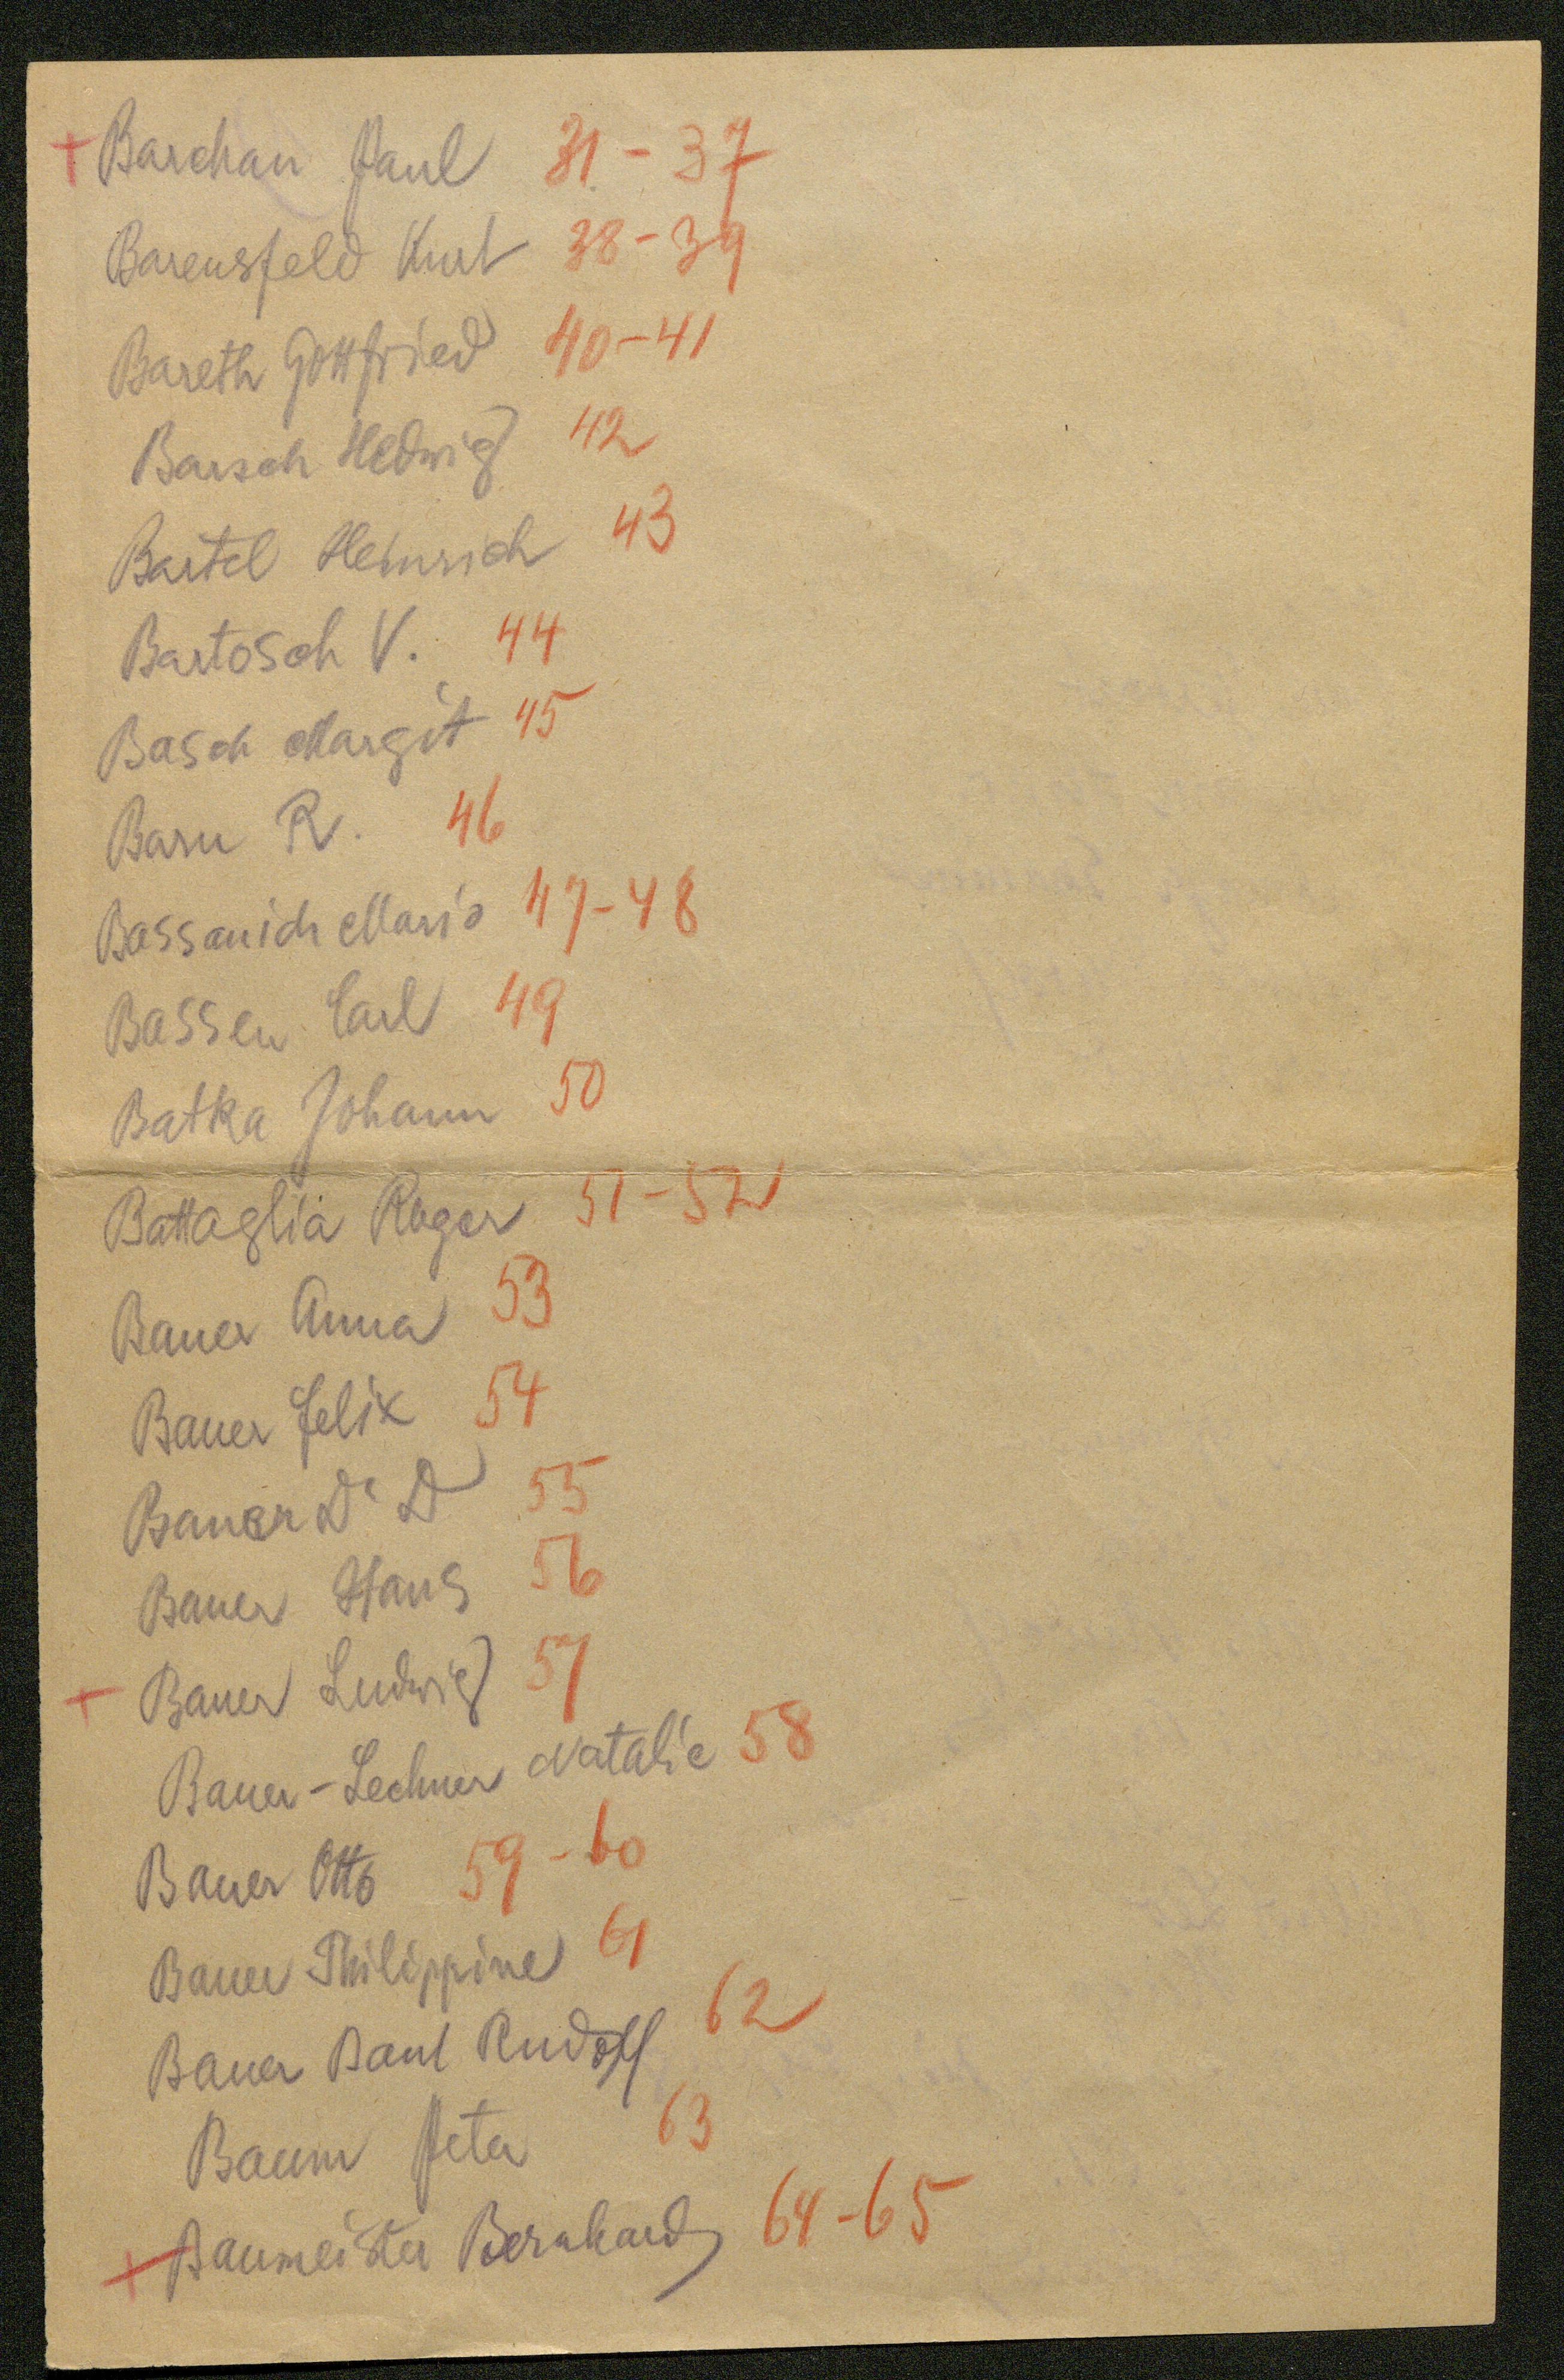 + Barchan Paul 31-37
Barensfeld Kurt 38-39
Bareth Gottfried 40-41
Barsch Hedwig 42
Bartel Heinrich 43
Bartosch V. 44
Basch Margit 45
Baru R. 46
Bassanich Mario 47-48
Bassen Carl 49
Batka Johann 50
Battaglia Roger 51-52
Bauer Anna 53
Bauer Felix 54
Bauer Dr D 55
Bauer Hans 56
+ Bauer Ludwig 57
Bauer-Lechner Natalie 58
Bauer Otto 59-60
Bauer Philippine 61
Bauer Paul Rudolf 62
Baum Peter 63
+ Baumeister Bernhard 64-65